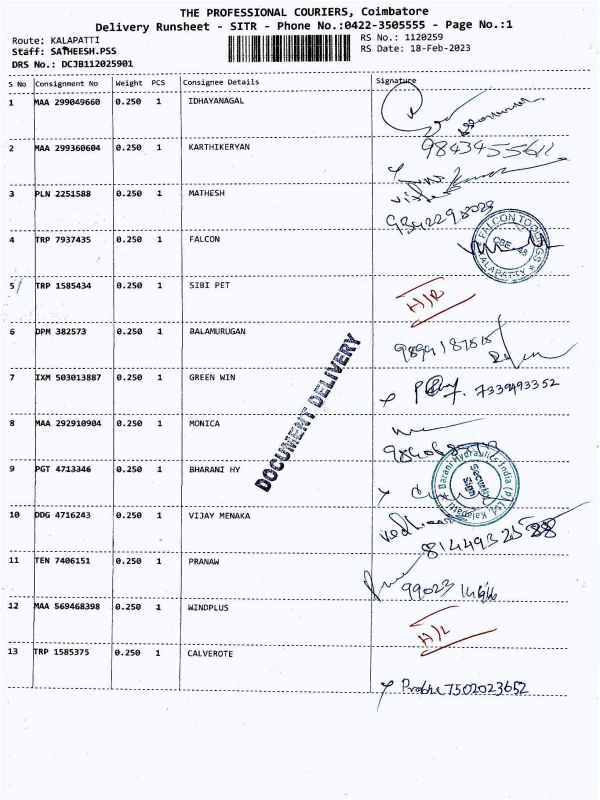 THE PROFESSIONAL COURIERS, Coimbatore
Delivery Runsheet - SITR - Phone No.:0422-3505555 - Page No.:1
Route; KALAPATTI
Staff: SATHEESH.PSS
DRS No.: DCJB112025901
RS No.: 1120259
RS Date: 18-Feb-2023
S No Consignment No Weight PCS Consignee Details Signature
1 MAA 299049660 0.250 1 IDHAYANAGAL
2 MAA 299360604 0.250 1 KARTHIKERYAN 9843455611
3 PLN 2251588 0.250 1 MATHESH
9342298029
4 TRP 7937435 0.250 1 FALCON FALCON TOOLINGS KALAPATTY CBE-48
5 TRP 1585434 0.250 1 SIBI PET H/R
6 DPM 382573 0.250 1 BALAMURUGAN
7 IXM 503013887 0.250 1 GREEN WIN 7339493352
8 MAA 292910904 0.250 1 MONICA
DOCUMENT DELIVERY
9 PGT 4713346 0.250 1 BHARANI HY Barani Hydraulics India (P) Ltd. Kalapatti Security Sign
10 DDG 4716243 0.250 1 VIJAY MENAKA
11 TEN 7406151 0.250 1 PRANAW
12 MAA 569468398 0.250 1 WINDPLUS H/L
13 TRP 1585375 0.250 1 CALVEROTE
Prabhu 7502023652